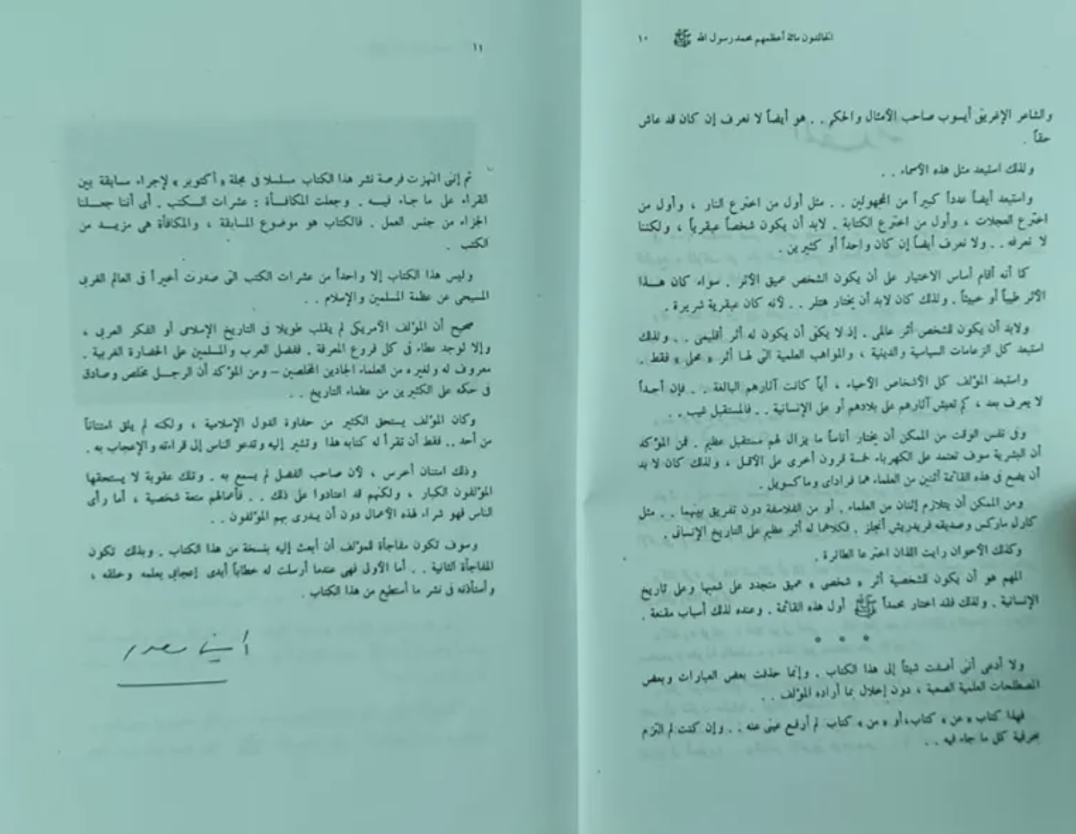 ١٠ الخالدون مائة أعظمهم محمد رسول الله ﷺ
والشاعر الإغريقى أيسوب صاحب الأمثال والحكم . . هو أيضاً لا نعرف إن كان قد عاش
حقاً .
ولذلك استبعد مثل هذه الأسماء . .
واستبعد أيضاً عدداً كبيراً من المجهولين . . مثل أول من اخترع النار ، وأول من
اخترع العجلات ، وأول من اخترع الكتابة . لابد أن يكون شخصاً عبقرياً ، ولكننا
لا نعرفه . . ولا نعرف أيضاً إن كان واحداً أو كثيرين .
كما أنه أقام أساس الاختيار على أن يكون الشخص عميق الأثر . سواء كان هـذا
الأثر طيباً أو خبيثاً . ولذلك كان لابد أن يختار هتلر . . لأنه كان عبقرية شريرة .
ولابد أن يكون للشخص أثر عالمى . إذ لا يكفى أن يكون له أثر أقليمى . . ولذلك
استبعد كل الزعامات السياسية والدينية ، والمواهب العلمية التى لها أثر « محلى » فقط .
واستبعد المؤلف كل الأشخاص الأحياء ، أياً كانت آثارهم البالغة . . فإن أحداً
لا يعرف بعد ، كم تعيش آثارهم على بلادهم أو على الإنسانية . . فالمستقبل غيب . .
وفى نفس الوقت من الممكن أن يختار أناساً ما يزال لهم مستقبل عظيم . فمن المؤكد
أن البشرية سوف تعتمد على الكهرباء خمسة قرون أخرى على الأقل ، ولذلك كان لا بد
أن يضع فى هذه القائمة أثنين من العلماء هما فراداى وماكسويل .
ومن الممكن أن يتلازم إثنان من العلماء . أو من الفلاسفة دون تفريق بينهما . . مثل
كارل ماركس وصديقه فريدريش أنجلز . فكلاهما له أثر عظيم على التاريخ الإنسانى .
وكذلك الأخوان رايت اللذان اخترعا الطائرة .
المهم هو أن يكون للشخصية أثر « شخصى » عميق متجدد على شعبها وعلى تاريخ
الإنسانية . ولذلك فقد اختار محمداً ﷺ أول هذه القائمة . وعنده لذلك أسباب مقنعة .
* * *
ولا أدعى أننى أضفت شيئاً إلى هذا الكتاب . وإنما حذفت بعض العبارات وبعض
المصطلحات العلمية الصعبة ، دون إخلال بما أراده المؤلف . .
فهذا كتاب « عن » كتاب ، أو « من » كتاب لم أرفع عينى عنه . . وإن كنت لم التزم
بحرفية كل ما جاء فيه . .
١١
ثم إننى انتهزت فرصة نشر هذا الكتاب مسلسلا فى مجلة « أكتوبر » لإجراء مسابقة بين
القراء على ما جاء فيـه . وجعلت المكافـأة : عشرات الكتب . أى أننا جعـلنا
الجزاء من جنس العمل . فالكتاب هو موضوع المسابقة ، والمكافأة هى مزيـد من
الكتب .
وليس هذا الكتاب إلا واحداً من عشرات الكتب التى صدرت أخيراً فى العالم الغربى
المسيحى عن عظمة المسلمين والإسلام . .
صحيح أن المؤلف الأمريكى لم يقلب طويلا فى التاريخ الإسلامى أو الفكر العربى ،
وإلا لوجد عطاء فى كل فروع المعرفة . ففضل العرب والمسلمين على الحضارة الغربية .
معروف له ولغيره من العلماء الجادين المخلصين – ومن المؤكد أن الرجـل مخلص وصادق
فى حكمه على الكثيرين من عظماء التاريخ . .
وكان المؤلف يستحق الكثير من حفاوة الدول الإسلامية ، ولكنه لم يلق امتناناً
من أحد .. فقط أن تقرأ له كتابه هذا وتشير إليه وتدعو الناس إلى قراءته والإعجاب به .
وذلك امتنان أخرس ، لأن صاحب الفضل لم يسمع به . وتلك عقوبة لا يستحقها
المؤلفون الكبار ، ولكنهم قد اعتادوا على ذلك . . فأعمالهم متعة شخصية ، أما رأى
الناس فهو شراء لهذه الأعمال دون أن يـدرى بهم المؤلفون . .
وسوف تكون مفاجأة للمؤلف أن أبعث إليه بنسخة من هذا الكتاب . وبذلك تكون
المفاجأة الثانية . . أما الأولى فهى عندما أرسلت له خطاباً أبدى إعجابى بعلمه وخلقه ،
وأستأذنه فى نشر ما أستطيع من هذا الكتاب .
أنيس منصور